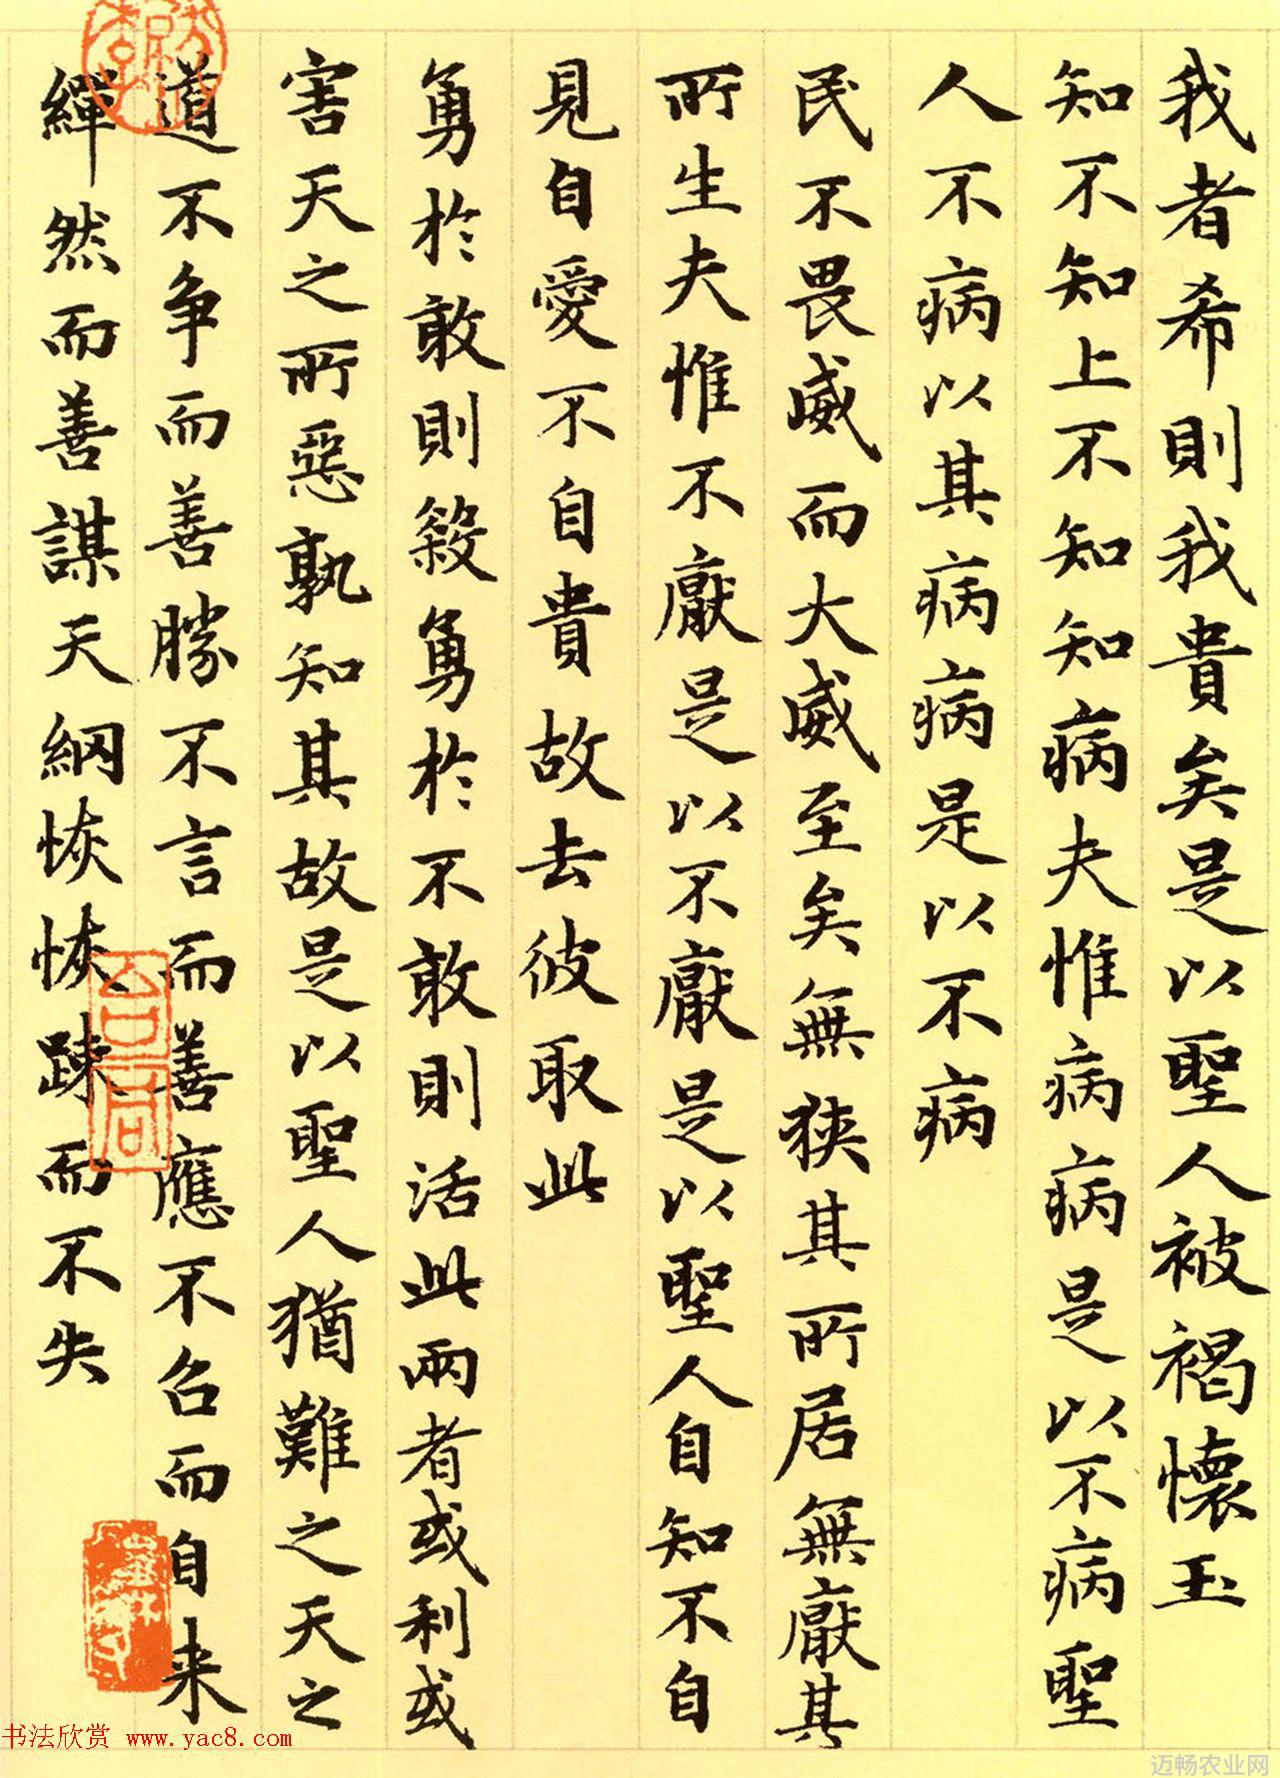 我者希則我貴矣是以聖人被褐懷玉
知不知上不知知病夫惟病病是以不病聖
人不病以其病病是以不病
民不畏威而大威至矣無狹其所居無厭其
所生夫惟不厭是以不厭是以聖人自知不自
見自愛不自貴故去彼取此
勇於敢則殺勇於不敢則活此兩者或利或
害天之所惡孰知其故是以聖人猶難之天之
道不争而善勝不言而善應不召而自来
繟然而善謀天網恢恢踈而不失
书法欣赏 www.yac8.com
迈畅农业网